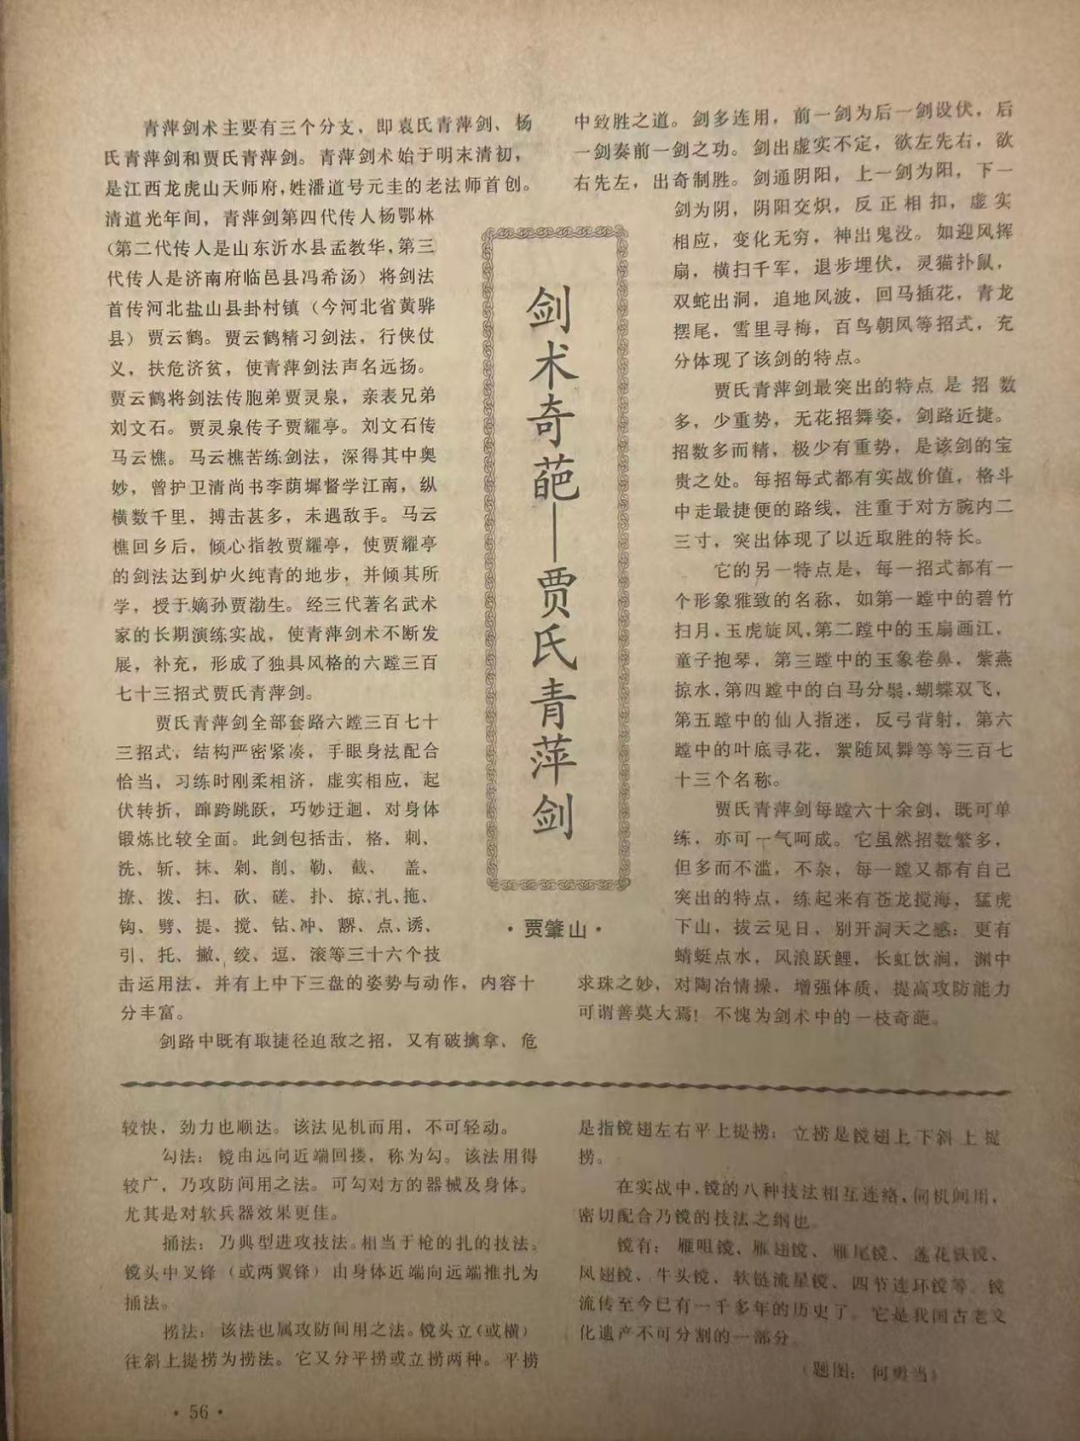 剑术奇葩——贾氏青萍剑
·贾肇山·
青萍剑术主要有三个分支，即袁氏青萍剑、杨
氏青萍剑和贾氏青萍剑。青萍剑术始于明末清初，
是江西龙虎山天师府，姓潘道号元圭的老法师首创。
清道光年间，青萍剑第四代传人杨鄂林
(第二代传人是山东沂水县孟教华，第三
代传人是济南府临邑县冯希汤）将剑法
首传河北盐山县卦村镇（今河北省黄骅
县）贾云鹤。贾云鹤精习剑法，行侠仗
义，扶危济贫，使青萍剑法声名远扬。
贾云鹤将剑法传胞弟贾灵泉，亲表兄弟
刘文石。贾灵泉传子贾耀亭。刘文石传
马云樵。马云樵苦练剑法，深得其中奥
妙，曾护卫清尚书李荫墀督学江南，纵
横数千里，搏击甚多，未遇敌手。马云
樵回乡后，倾心指教贾耀亭，使贾耀亭
的剑法达到炉火纯青的地步，并倾其所
学，授于嫡孙贾渤生。经三代著名武术
家的长期演练实战，使青萍剑术不断发
展，补充，形成了独具风格的六蹚三百
七十三招式贾氏青萍剑。
贾氏青萍剑全部套路六蹚三百七十
三招式，结构严密紧凑，手眼身法配合
恰当，习练时刚柔相济，虚实相应，起
伏转折，蹿跨跳跃，巧妙迂迴，对身体
锻炼比较全面。此剑包括击、格、刺、
洗、斩、抹、剁、削、勒、截、盖、
撩、拨、扫、砍、磋、扑、掠、扎、拖、
钩、劈、提、搅、钻、冲、点、诱、
引、托、撇、绞、逗、滚等三十六个技
击运用法，并有上中下三盘的姿势与动作，内容十
分丰富。
剑路中既有取捷径迫敌之招，又有破擒拿、危
中致胜之道。剑多连用，前一剑为后一剑设伏，后
一剑奏前一剑之功。剑出虚实不定，欲左先右，欲
右先左，出奇制胜。剑通阴阳，上一剑为阳，下一
剑为阴，阴阳交炽，反正相扣，虚实
相应，变化无穷，神出鬼没。如迎风挥
扇，横扫千军，退步埋伏，灵猫扑鼠，
双蛇出洞，追地风波，回马插花，青龙
摆尾，雪里寻梅，百鸟朝凤等招式，充
分体现了该剑的特点。
贾氏青萍剑最突出的特点是招数
多，少重势，无花招舞姿，剑路近捷。
招数多而精，极少有重势，是该剑的宝
贵之处。每招每式都有实战价值，格斗
中走最捷便的路线，注重于对方腕内二
三寸，突出体现了以近取胜的特长。
它的另一特点是，每一招式都有一
个形象雅致的名称，如第一蹚中的碧竹
扫月，玉虎旋风，第二蹚中的玉扇画江，
童子抱琴，第三蹚中的玉象卷鼻，紫燕
掠水，第四蹚中的白马分鬃，蝴蝶双飞，
第五蹚中的仙人指迷，反弓背射，第六
蹚中的叶底寻花，絮随风舞等等三百七
十三个名称。
贾氏青萍剑每蹚六十余剑，既可单
练，亦可一气呵成。它虽然招数繁多，
但多而不滥，不杂，每一蹚又都有自己
突出的特点，练起来有苍龙搅海，猛虎
下山，拔云见日，别开洞天之感；更有
蜻蜓点水，风浪跃鲤，长虹饮涧，渊中
求珠之妙，对陶冶情操，增强体质，提高攻防能力
可谓善莫大焉！不愧为剑术中的一枝奇葩。
较快，劲力也顺达。该法见机而用，不可轻动。
勾法：镋由远向近端回搂，称为勾。该法用得
较广，乃攻防间用之法。可勾对方的器械及身体。
尤其是对软兵器效果更佳。
捅法：乃典型进攻技法。相当于枪的扎的技法。
镋头中叉锋（或两翼锋）由身体近端向远端推扎为
捅法。
捞法：该法也属攻防间用之法。镋头立(或横)
往斜上提捞为捞法。它又分平捞或立捞两种。平捞
是指镋翅左右平上提捞；立捞是镋翅上下斜上提
捞。
在实战中，镋的八种技法相互连络，伺机间用，
密切配合乃镋的技法之纲也。
镋有：雁咀镋、雁翅镋、雁尾镋、莲花铁镋、
凤翅镋、牛头镋、软链流星镋、四节连环镋等。镋
流传至今已有一千多年的历史了。它是我国古老文
化遗产不可分割的一部分。
（题图：何勇当）
·56·